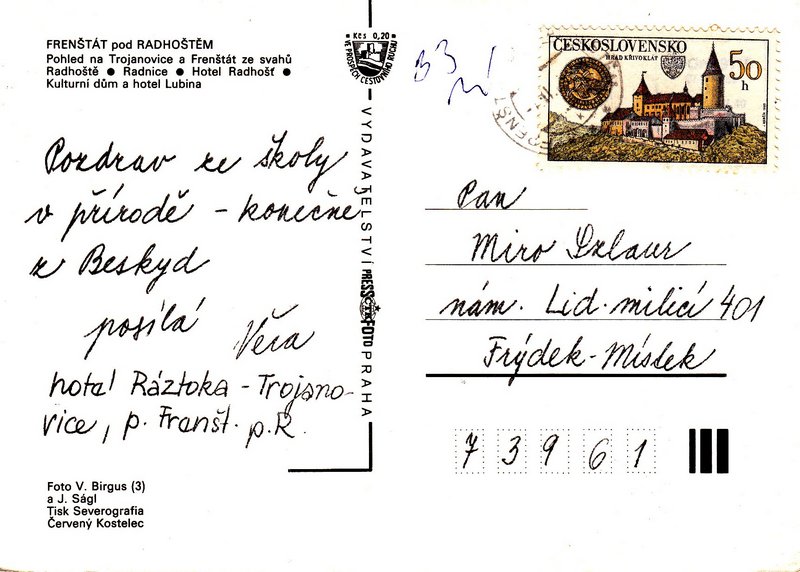 FRENŠTÁT pod RADHOŠTĚM
Pohled na Trojanovice a Frenštát ze svahů
Radhoště ● Radnice ● Hotel Radhošť ●
Kulturní dům a hotel Lubina
Pozdrav ze školy
v přírodě - konečně
z Beskyd
posílá Věra
hotel Ráztoka - Trojano-
vice, p. Frenšt. p. R.
Foto V. Birgus (3)
a J. Ságl
Tisk Severografia
Červený Kostelec
Kčs 0,20
VE PROSPĚCH CESTOVNÍHO RUCHU
VYDAVATELSTVÍ PRESSFOTO PRAHA
ČTK
ČESKOSLOVENSKO
HRAD KŘIVOKLÁT
50
h
Pan
Miro
nám. Lid. milicí 401
Frýdek-Místek
7 3 9 6 1